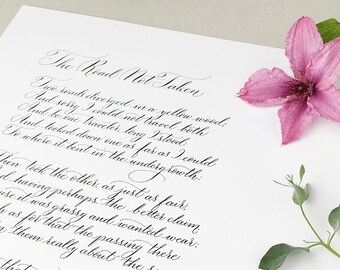 The Road Not Taken
Two roads diverged in a yellow wood,
And sorry I could not travel both
And be one traveler, long I stood
And looked down one as far as I could
To where it bent in the undergrowth;
Then took the other, as just as fair,
having perhaps the better claim
it was grassy and wanted wear;
as for that the passing there
them really about the
that